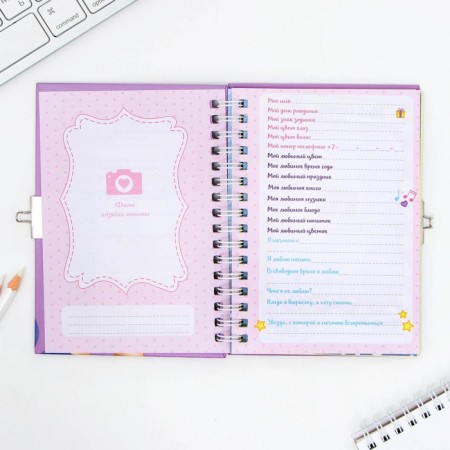 command
option
Фото
хозяйки анкеты
Мое имя
Мой день рождения
Мой знак зодиака
Мой цвет глаз
Мой цвет волос
Мой номер телефона +7
Мой любимый цвет
Мое любимое время года
Мой любимый праздник
Моя любимая книга
Моя любимая музыка
Мое любимое блюдо
Мой любимый напиток
Мой любимый цветок
Я мечтаю о
Я люблю
В свободное время я люблю
Чего я не люблю?
Когда я вырасту, я хочу стать
Звезда, с которой я мечтаю встретиться